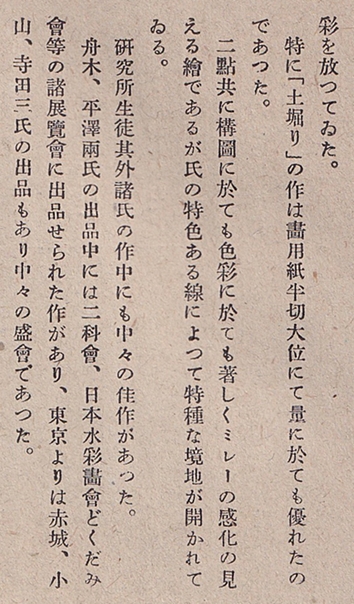 彩を放つてゐた。
特に「土堀り」の作は畫用紙半切大位にて量に於ても優れたの
であつた。
二點共に構圖に於ても色彩に於ても著しくミレーの感化の見
える繪であるが氏の特色ある線によつて特種な境地が開かれて
ゐる。
研究所生徒其外諸氏の作中にも中々の佳作があつた。
舟木、平澤兩氏の出品中には二科會、日本水彩畫會どくだみ
會等の諸展覽會に出品せられた作があり、東京よりは赤城、小
山、寺田三氏の出品もあり中々の盛會であつた。